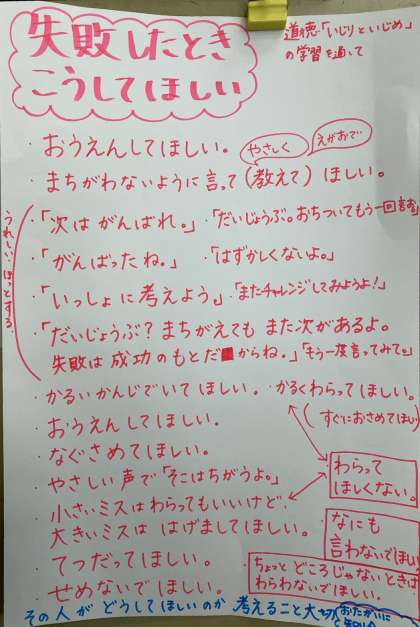 失敗したとき
こうしてほしい
道徳「いじりといじめ」
の学習を通して
・おうえんしてほしい。
やさしく
えがおで
・まちがわないように言って(教えて)ほしい。
うれしい・ほっとする
・「次は がんばれ。」・「だいじょうぶ。おちついてもう一回言お
・「がんばったね。」・「はずかしくないよ。」
・「いっしょに考えよう。」・「またチャレンジしてみようよ!」
・「だいじょうぶ?まちがえても また次があるよ。
失敗は成功のもとだからね。」「もう一度言ってみて。」
・かるいかんじでいてほしい。・かるくわらってほしい。
(すぐにおさめてほしい)
・おうえんしてほしい。
・なぐさめてほしい。
・やさしい声で「そこはちがうよ。」
わらって
ほしくない。
・小さいミスはわらってもいいけど、
大きいミスは はげましてほしい。
なにも
言わないでほしい
・てつだってほしい。
ちょっと どころじゃないときは
わらわないでほしい。
・せめないでほしい。
その人が どうしてほしいのか 考えること大切
おたがいに